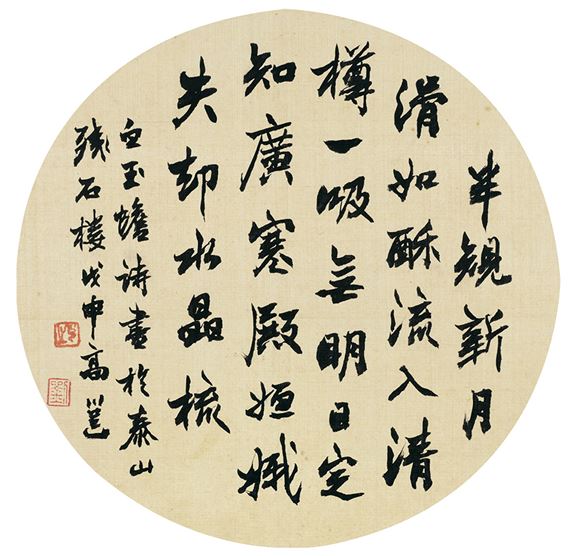 半規新月
滑如酥流入清
樽一吸無明日定
知廣寒殿姮娥
失却水晶梳
白玉蟾詩書於泰山
殘石樓戊申高邕